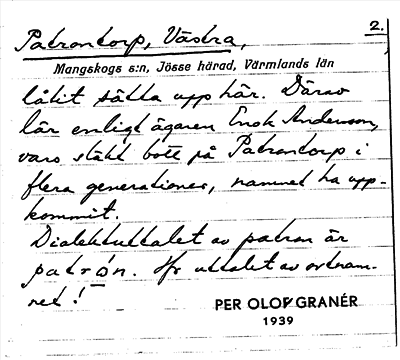 2.
Patrontorp, Västra,
Mangskogs s:n, Jösse härad, Värmlands län
låtit sätta upp här. Därav
lär enligt ägaren Enok Andersson,
vars släkt bott på Patrontorp i
flera generationer, namnet ha upp-
kommit.
Dialektuttalet av patron är
patrón. Jfr uttalet av ortnam-
net!
PER OLOF GRANÉR
1939